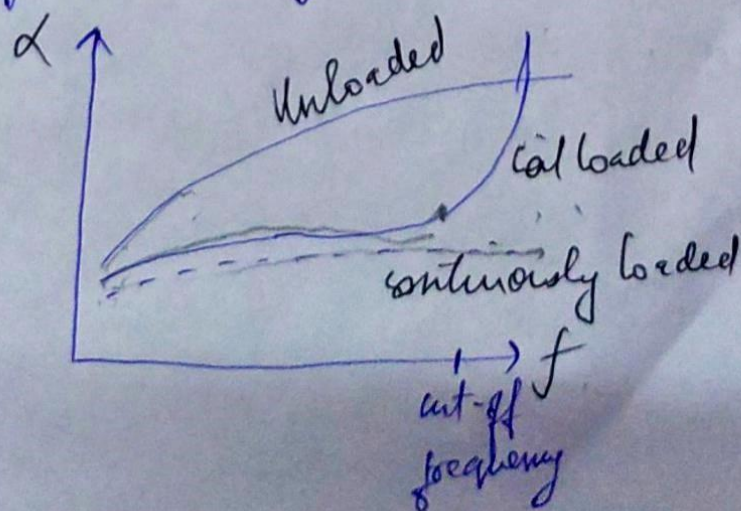 α
Unloaded
Coil loaded
continuously loaded
f
cut-off
frequency